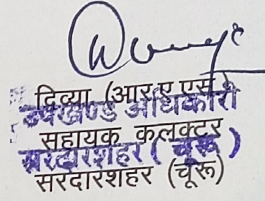 दिव्या (आर.ए.एस.)
उपखण्ड अधिकारी
सहायक कलक्टर
सरदारशहर ( चूरू )
सरदारशहर (चूरू)